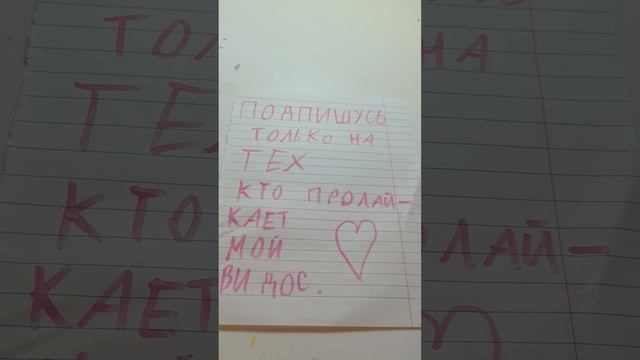 ПОДПИШУСЬ
ТОЛЬКО НА
ТЕХ
КТО ПРОЛАЙ-
КАЕТ
МОЙ
ВИДОС.